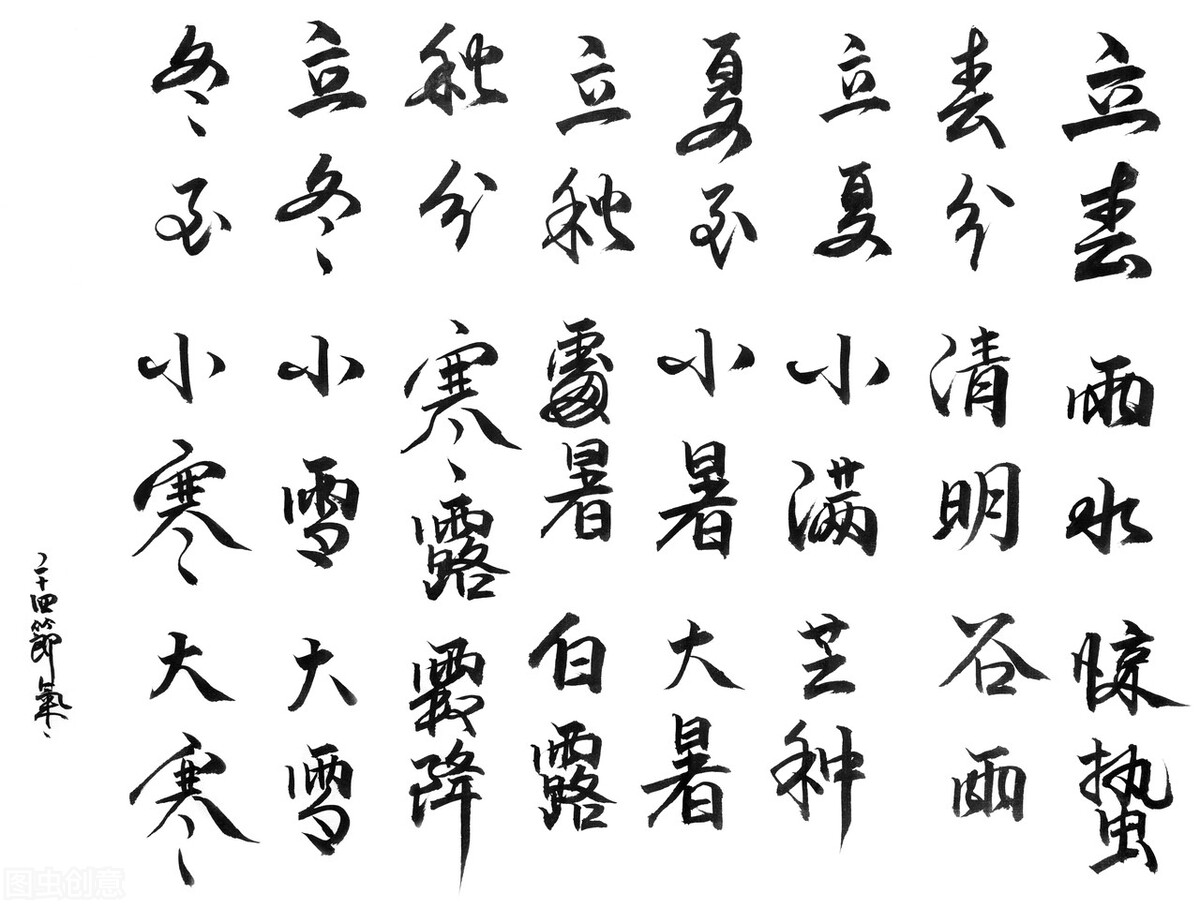 立春 雨水 惊蛰
春分 清明 谷雨
立夏 小满 芒种
夏至 小暑 大暑
立秋 處暑 白露
秋分 寒露 霜降
立冬 小雪 大雪
冬至 小寒 大寒
二十四節氣
图虫创意